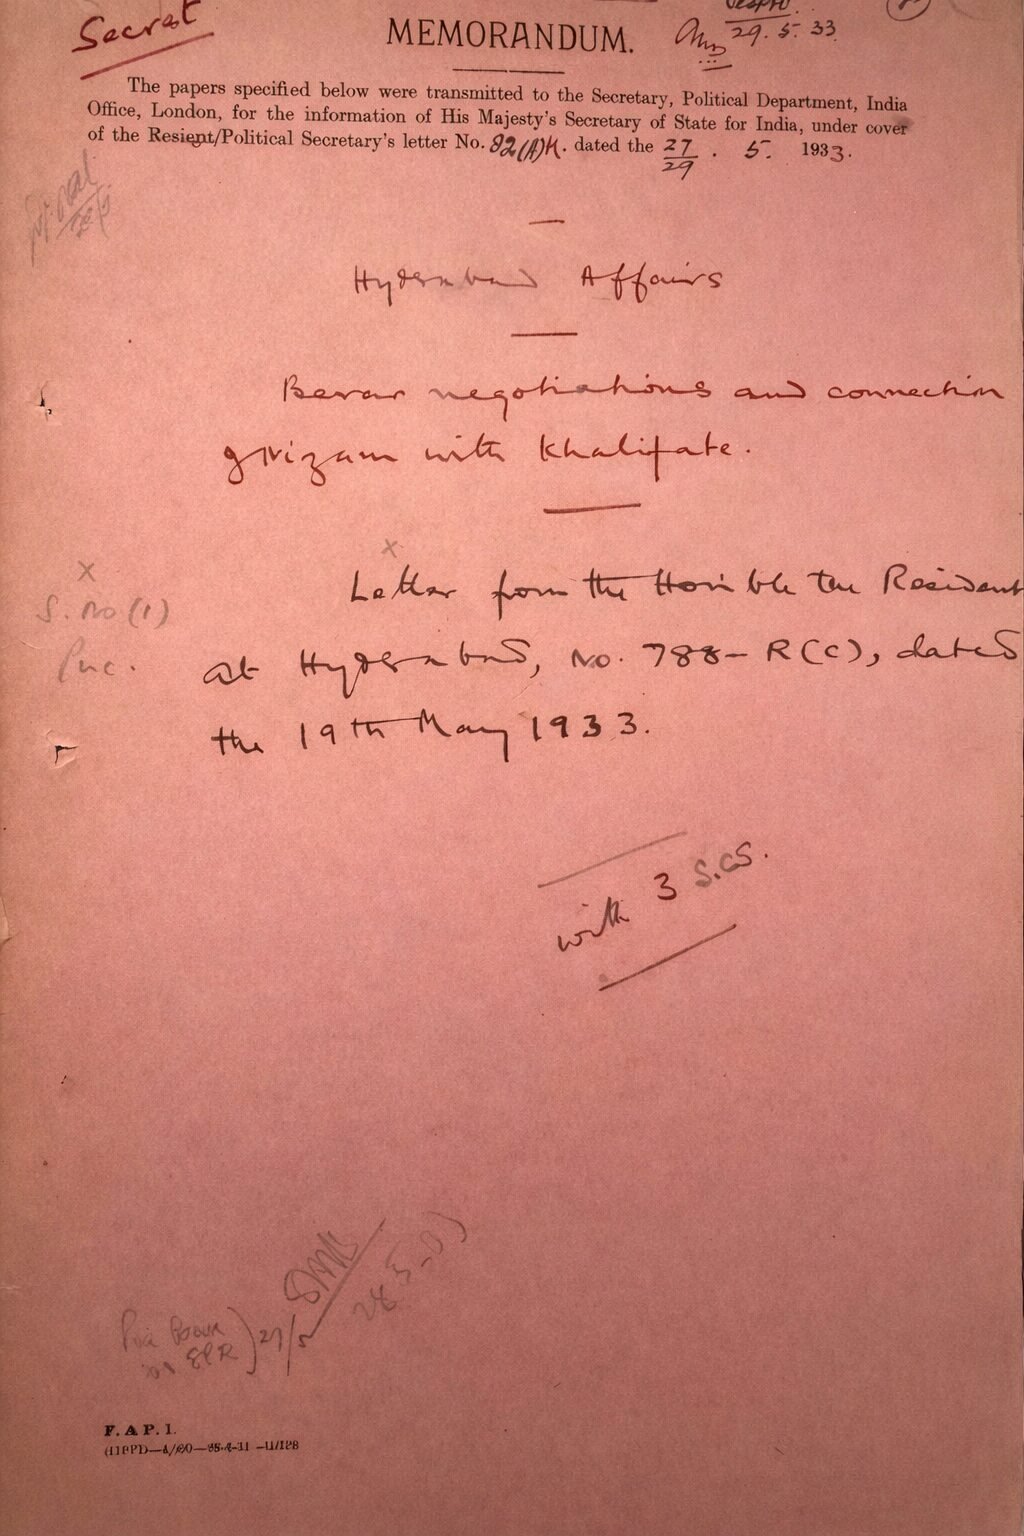 Secret
MEMORANDUM.
29.5.33
The papers specified below were transmitted to the Secretary, Political Department, India
Office, London, for the information of His Majesty's Secretary of State for India, under cover
of the Resient/Political Secretary's letter No. 82(A)K. dated the 27/29 . 5. 1933.
Hyderabad Affairs
Berar negotiations and connection
of Nizam with Khalifate.
x
x
Letter from the Hon'ble the Resident
S. No (1)
at Hyderabad, No. 788-R(C), dated
Puc.
the 19th May 1933.
with 3 S.CS.
27/5
F. A P. I.